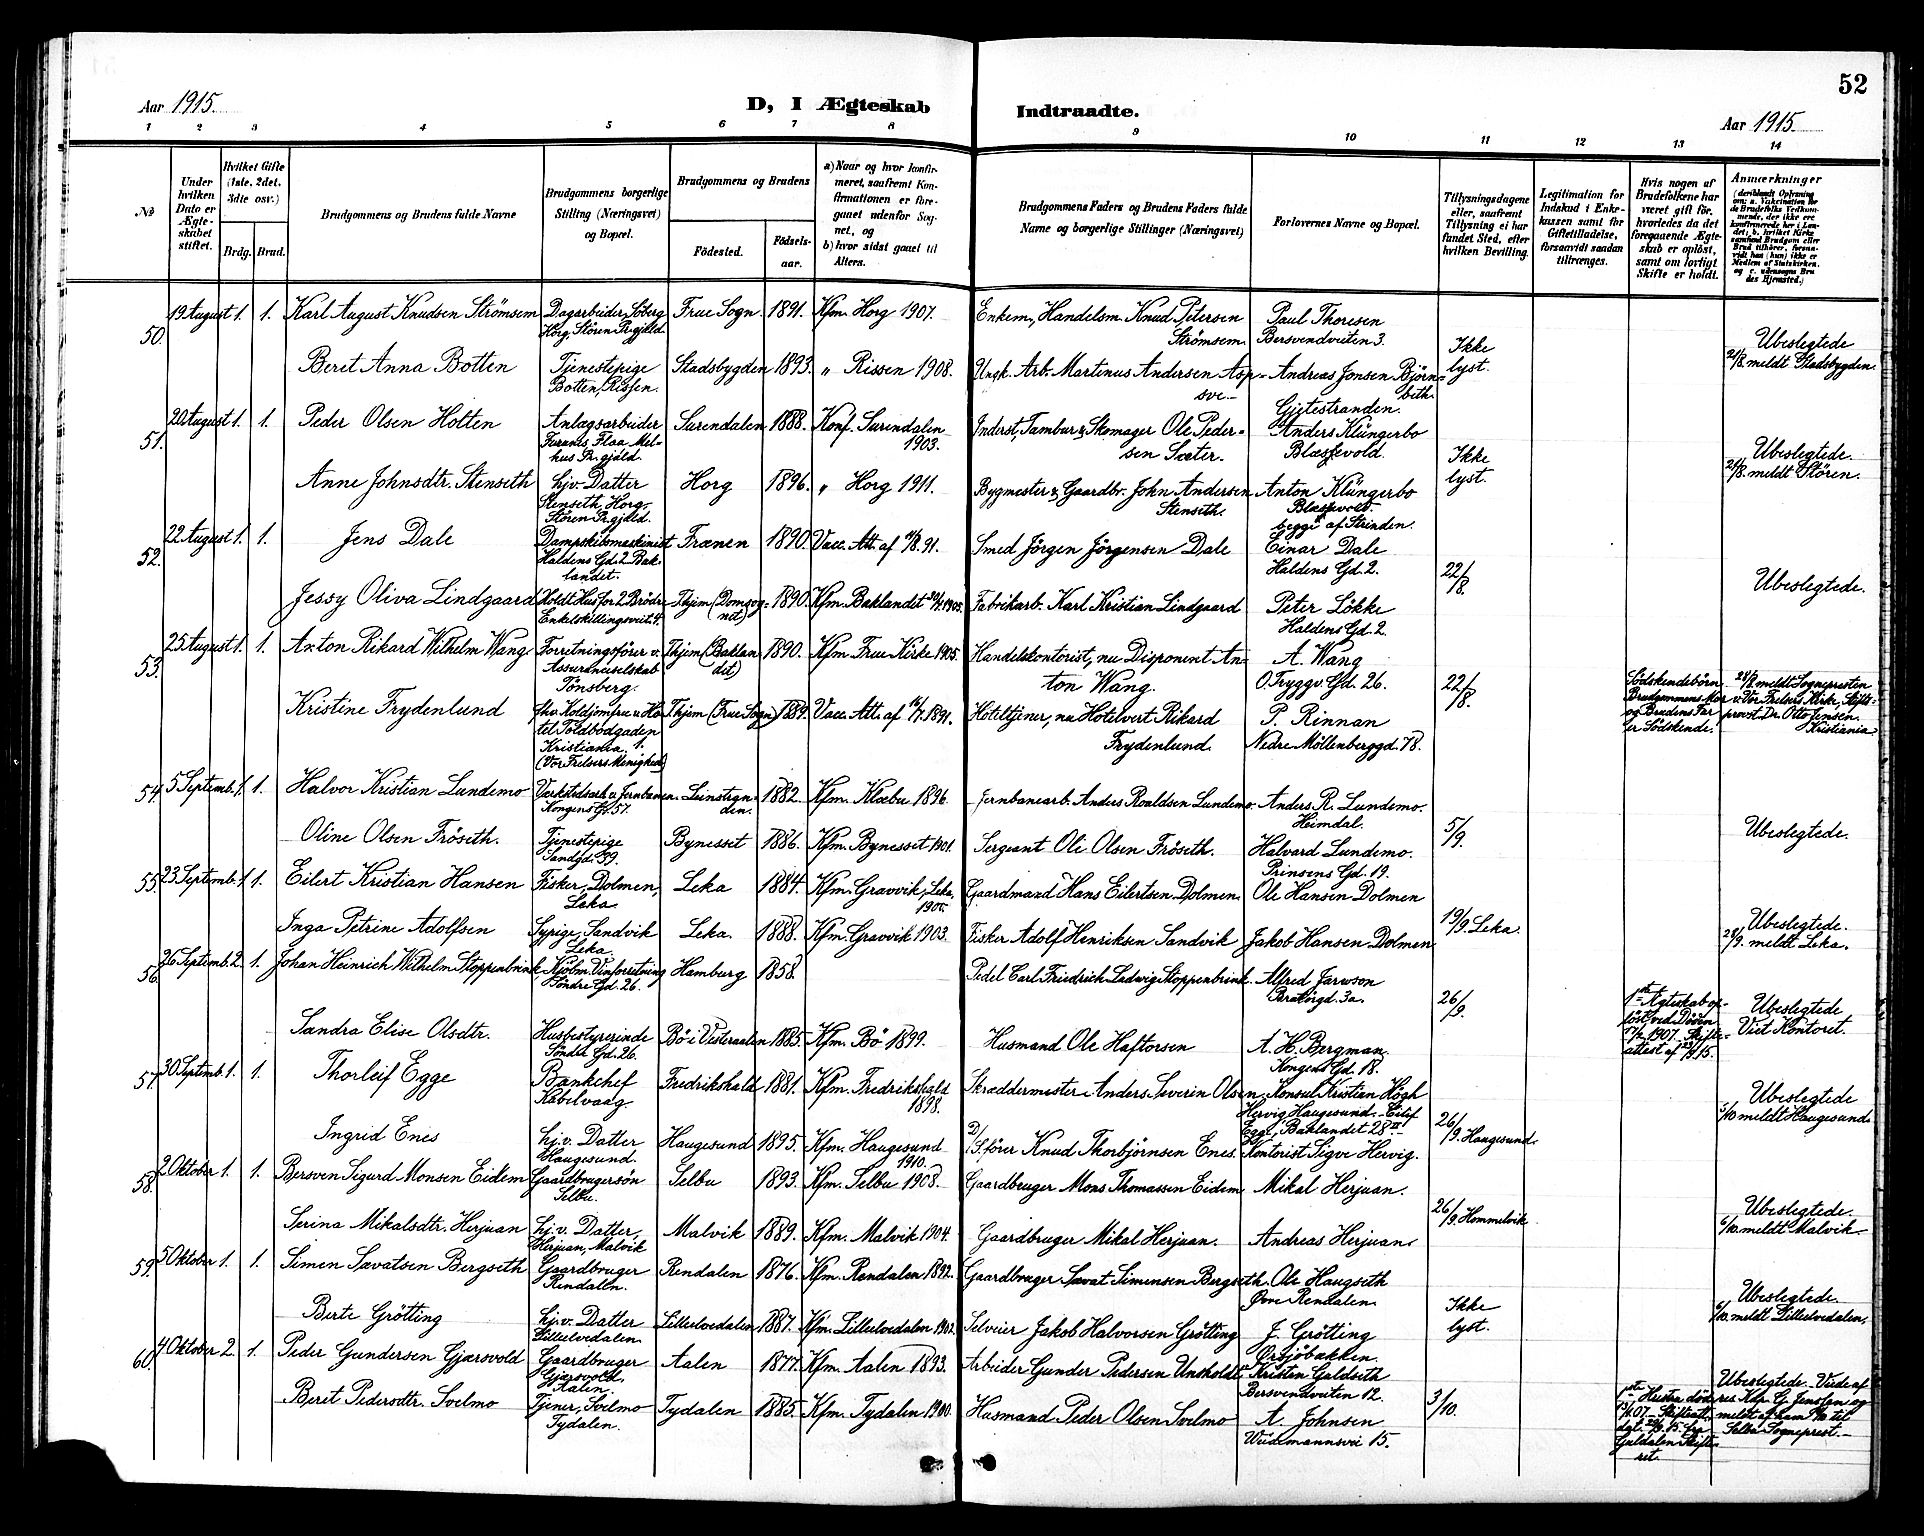 52
Aar 1915.
D, I Ægteskab
Indtraadte.
Aar 1915.
1 2 3 4 5 6 7 8 9 10 11 12 13 14
№
Under hvilken Dato er Ægteskabet stiftet.
Hvilket Gifte (1ste, 2det, 3dte osv.)
Brdg. Brud.
Brudgommens og Brudens fulde Navne
Brudgommens borgerlige Stilling (Næringsvei) og Bopæl.
Brudgommens og Brudens
Fødested.
Fødselsaar.
a) Naar og hvor konfirmeret, saafremt Konfirmationen er foregaaet udenfor Sognet, og
b) hvor sidst gaaet til Alters.
Brudgommens Faders og Brudens Faders fulde Navne og borgerlige Stillinger (Næringsvei)
Forlovernes Navne og Bopæl.
Tillysningsdagene eller, saafremt Tillysning ei har fundet Sted, efter hvilken Bevilling.
Legitimation for Indskud i Enkekassen samt for Giftetilladelse, forsaavidt saadan tiltrænges.
Hvis nogen af Brudefolkene har været gift før, hvorledes da det foregaaende Ægteskab er opløst, samt om lovligt Skifte er holdt.
Anmærkninger
50. 19 August 1. 1. Karl August Knudsen Strömsem Dagarbeider, Söberg Horg, Stören Pr.gjeld. Frue Sogn 1891. Kfm. Horg 1907. Enkem., Handelsm. Knud Petersen Strömsem. Paul Thoresen Bersvendveiten 3.
Beret Anna Botten Tjenestepige Botten, Rissen. Stadsbygden 1893. " Rissen 1908. Ungk. Arb. Martinus Andersen Andreas Jonsen Gjetestranden. Ikke lyst. Ubeslegtede 21/8. meldt Stadsbygden.
51. 20 August 1. 1. Peder Olsen Holten Anlagsarbeider Flaa Melhus Pr.gjeld. Surendalen 1888. Konf. Surendalen 1903. Inderst, Tambur & Skomager Ole Pedersen Sæter. Anders Klüngerbo Blæssevold.
Anne Johnsdtr. Stenseth hjv. Datter Stenseth, Horg, Stören Pr.gjeld. Horg 1896. " Horg 1911. Bygmester & Gaardbr. John Andersen Stenseth. Anton Klüngerbo Blæssevold. begge af Strinden. Ikke lyst. Ubeslegtede. 21/8. meldt Stören.
52. 22 August 1. 1. Jens Dale Dampskibsmaskinist Haldens Gd. 2 Baklandet. Frænen 1890. Vacc. Att. af 91. Smed Jörgen Jörgensen Dale Einar Dale Haldens Gd. 2.
Jessy Oliva Lindgaard Holdt Hus for 2 Brödre Enkelskillingsveit 4. Thjem (Domsognet) 1890. Kfm. Baklandet 1905. Fabrikarb. Karl Kristian Lindgaard Peter Lökke Haldens Gd. 2. 22/8. Ubeslegtede.
53. 25 August 1. 1. Anton Rikard Wilhelm Wang Forretningsförer v. Assuranceselskab Tönsberg. Thjem (Baklandet) 1890. Kfm. Frue Kirke 1905. Handelskontorist, nu Disponent Anton Wang. A. Wang O. Tryggv. Gd. 26.
Kristine Frydenlund fhv. Koldjomfru v. Hotel Toldbodgaden 1. Kristiania (Vor Frelsers Menighed) Thjem (Frue Sogn) 1889. Vacc. Att. af 1891. Hoteltjener, nu Hotelvert Rikard Frydenlund. P. Rinnan Nedre Möllenberggd. 78. 22/8. Södskendebörn Brudgommens Mor og Brudens Far er Södskende. meldt Sognepresten v. Vor Frelsers Kirke, Stiftsprovst Dr. Otto Jensen. Kristiania.
54. 5 Septemb. 1. 1. Halvor Kristian Lundemo Verkstedsarb. v. Jernbanen. Kongens Gd. 57. Leinstranden. 1882. Kfm. Klæbu 1896. Jernbanearb. Anders Roaldsen Lundemo. Anders R. Lundemo. Heimdal.
Oline Olsen Fröseth. Tjenestepige Sandgd. 39. Bynesset 1886. Kfm. Bynesset 1901. Sergeant Ole Olsen Fröseth. Halvard Lundemo. Prinsens Gd. 19. 5/9. Ubeslegtede.
55. 23 Septemb. 1. 1. Eilert Kristian Hansen Fisker, Dolmen, Leka. Leka 1884. Kfm. Gravvik, Leka. 1900. Gaardmand Hans Eilertsen Dolmen. Ole Hansen Dolmen
Inga Petrine Adolfsen Sypige, Sandvik Leka. Leka. 1888. Kfm. Gravvik 1903. Fisker Adolf Henriksen Sandvik Jakob Hansen Dolmen 19/9. Leka. Ubeslegtede. 28/9. meldt Leka.
56. 26 Septemb. 2. 1. Johan Heinrich Wilhelm Stoppenbrink Kjolm. Vinforretning Söndre Gd. 26. Hamburg 1858. Pedel Carl Friedrich Ludwig Stoppenbrink. Alfred Jarwson Bratörgd. 3a.
Sandra Elise Olsdtr. Husbestyrerinde Söndre Gd. 26. Bö i Vesteraalen 1885. Kfm. Bö 1899. Husmand Ole Haftorsen A. H. Bergman. Kongens Gd. 18. 26/9. 1ste Ægteskab oplöst ved Döden 1907. Skifteattest af 15. Ubeslegtede Viet Kontoret.
57. 30 Septemb. 1. 1. Thorleif Egge Bankchef Kabelvaag. Fredrikshald 1881. Kfm. Fredrikshald 1898. Skræddermester Anders Severin Olsen. Konsul Kristian Högh Hervig Haugesund. Eilif Egge, Baklandet 28 III
Ingrid Enes hj.v. Datter Haugesund. Haugesund 1895. Kfm. Haugesund 1910. D/S.förer Knud Thorbjörnsen Enes. Kontorist Sigve Hervig. 26/9. Haugesund. Ubeslegtede 1/10 meldt Haugesund.
58. 2 Oktober 1. 1. Bersven Sigurd Monsen Eidem Gaardbrugersön Selbu. Selbu 1893. Kfm. Selbu 1908. Gaardbruger Mons Thomassen Eidem Mikal Herjuan.
Serina Mikalsdtr. Herjuan hj.v. Datter, Herjuan, Malvik Malvik 1889. Kfm. Malvik 1904. Gaardbruger Mikal Herjuan. Andreas Herjuan. 26/9. Hommelvik. Ubeslegtede. 6/10. meldt Malvik.
59. 3 Oktober 1. 1. Simen Savatsen Bergseth Gaardbruger Rendalen. Rendalen 1876. Kfm. Rendalen 1892. Gaardbruger Savat Simensen Bergseth. Ole Haugseth Övre Rendalen.
Berte Grötting hj.v. Datter Lilleelvedalen. Lilleelvedalen 1887. Kfm. Lilleelvedalen 1902. Selveier Jakob Halvorsen Grötting J. Grötting Orsjöbakken. Ikke lyst. Ubeslegtede. 6/10. meldt Lilleelvedalen.
60. 4 Oktober 2. 1. Peder Gundersen Gjærsvold Gaardbruger Gjærsvold, Aalen. Aalen 1877. Kfm. Aalen 1893. Arbeider Gunder Pedersen Unsholdt Kristen Guldseth Bersvendveiten 12.
Beret Pedersdtr. Svelmo Tjener, Svelmo Tydalen. Tydalen 1885. Kfm. Tydalen 1900. Husmand Peder Olsen Svelmo A. Johnsen Weidemannsvei 15. 3/10. 1ste Hustru död 07. Skifteatt. dat. 15 fra Guldalen Skifteret. Ubeslegtede. Viede af res. Kap. G. Jenssen og meldt af ham til Selbu Sogneprest.